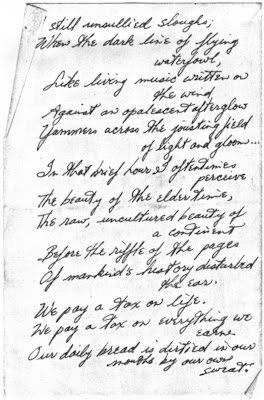 still unsullied sloughs;
When the dark line of flying
waterfowl,
Like living music written on
the wind,
Against an opalescent afterglow
Yammers across the jousting field
of light and gloom...
In that brief hour I oftentimes
perceive
The beauty of the elder time,
The raw, uncultured beauty of
a continent
Before the riffle of the pages
Of mankind's history disturbed
the ear.
We pay a tax on life.
We pay a tax on everything we
earn.
Our daily bread is dirtied in our
mouths by our own
sweat.